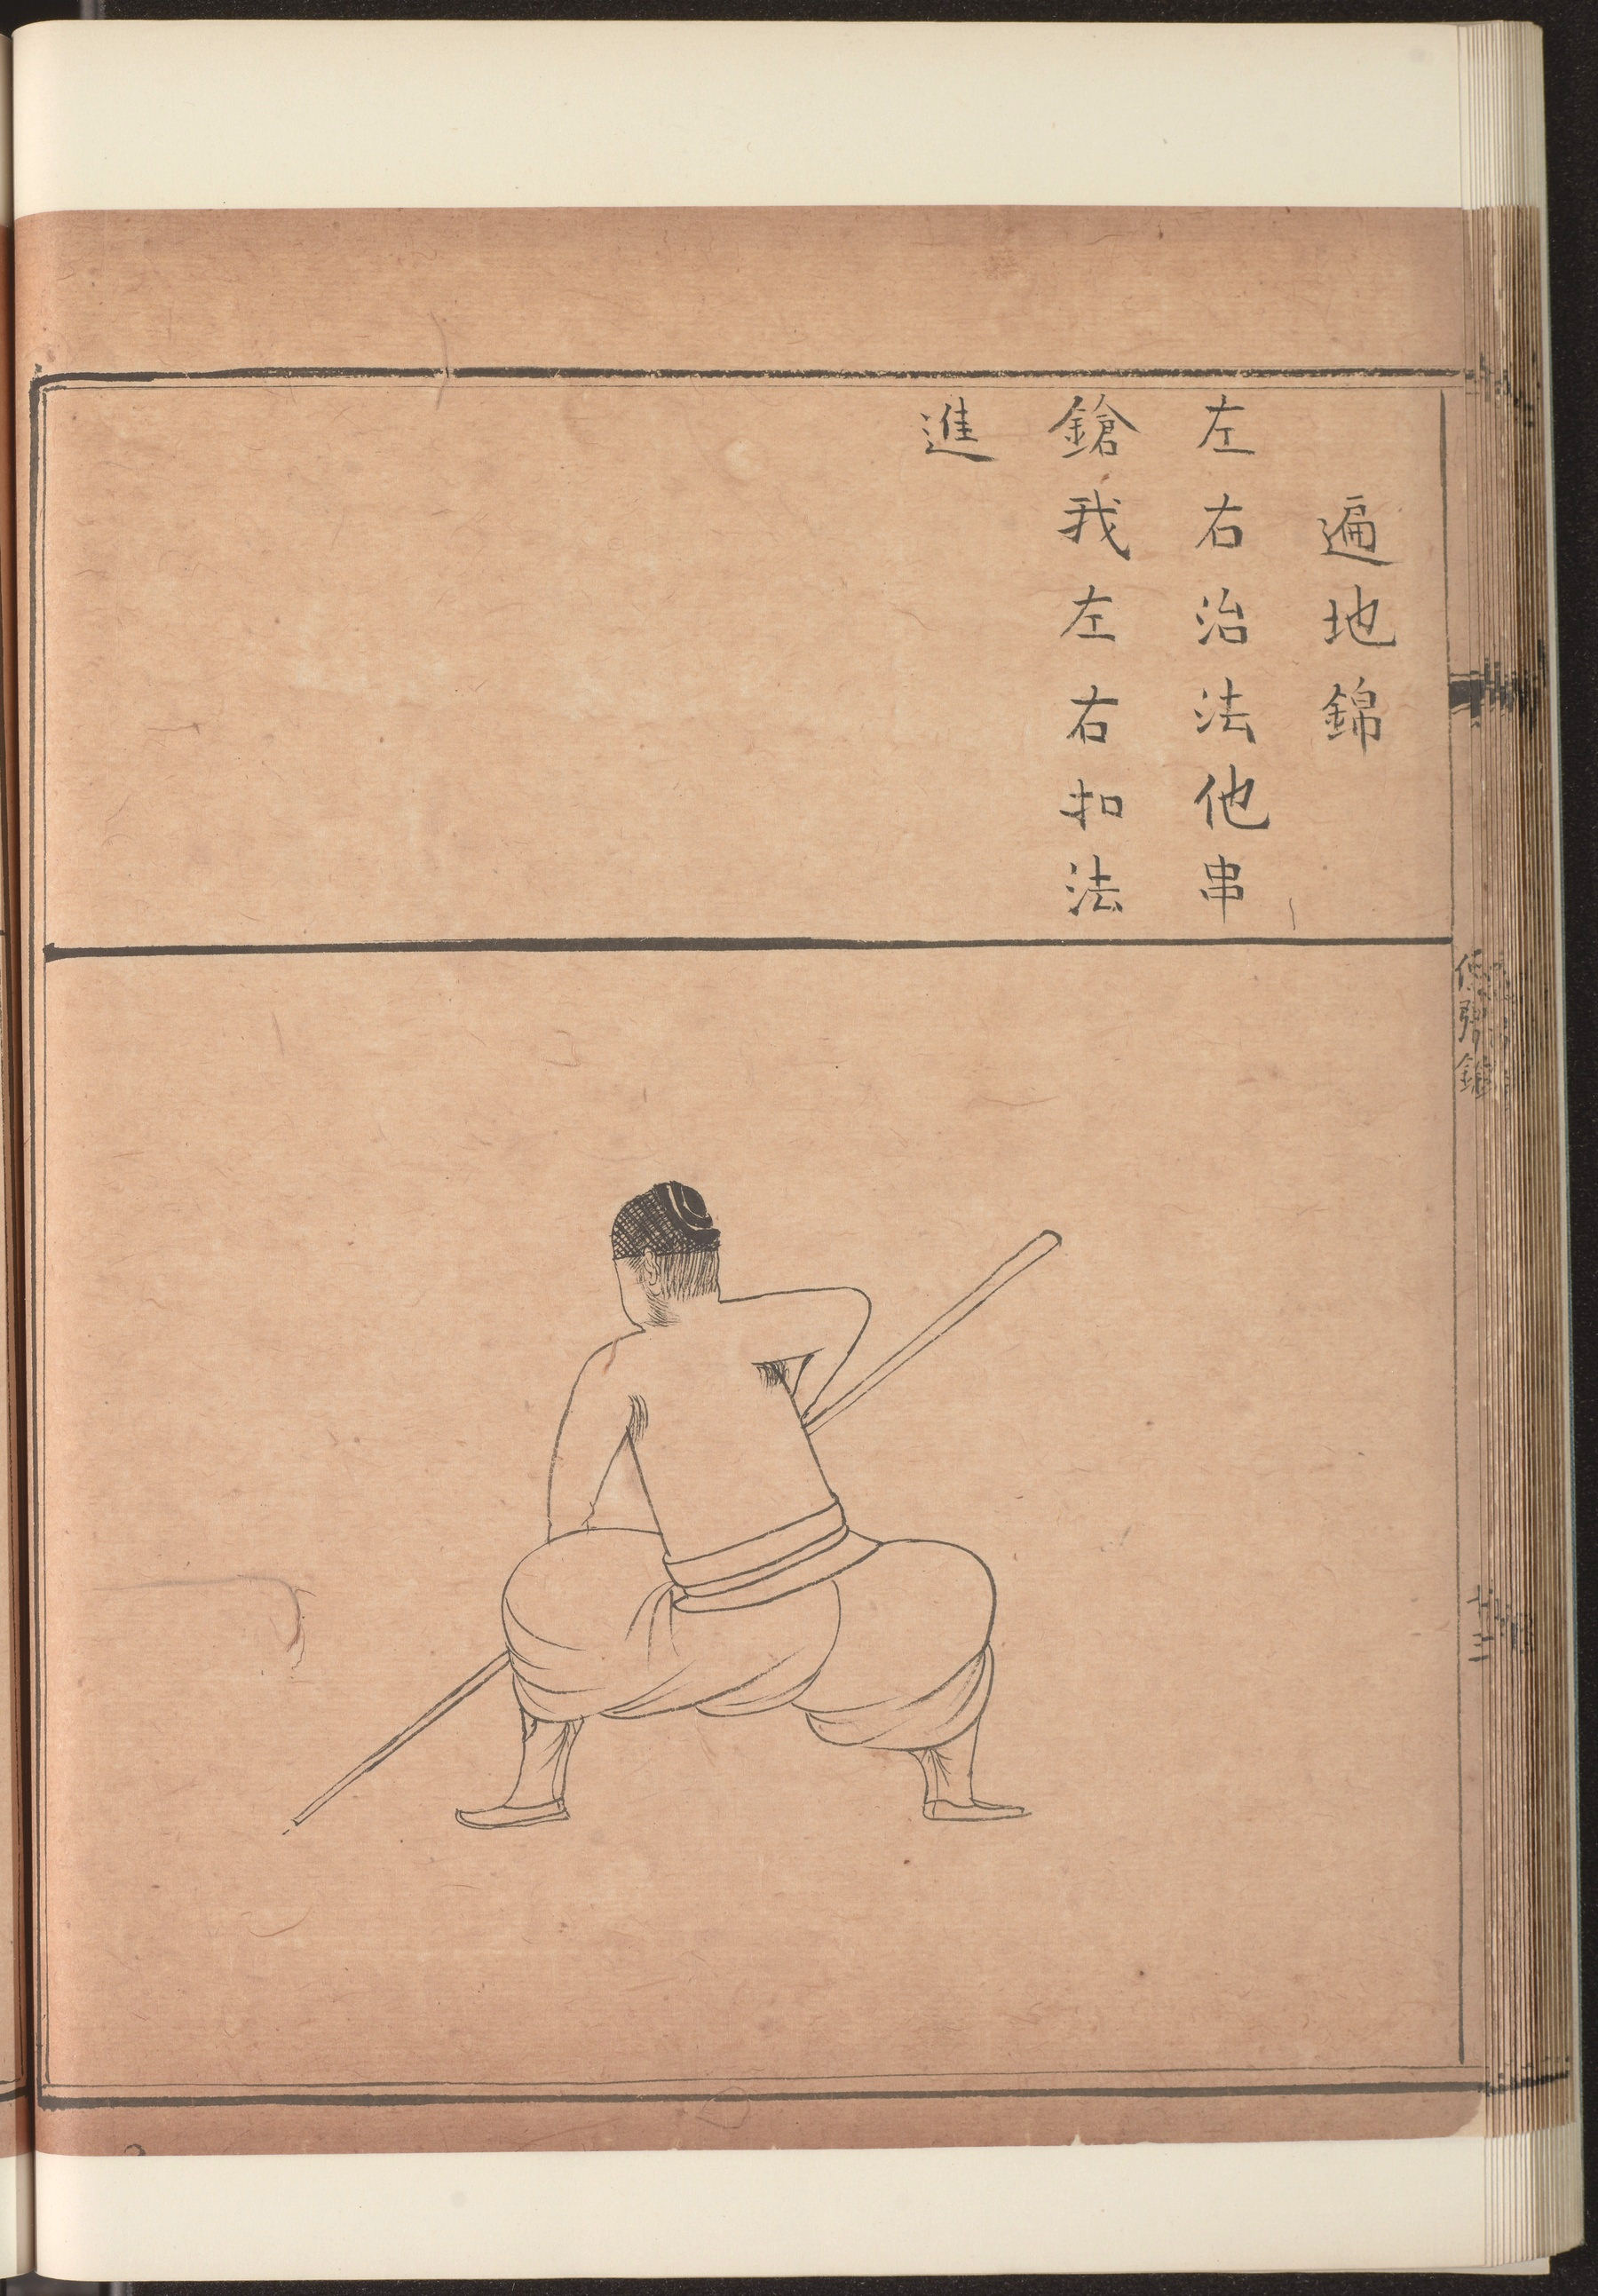 遍地錦
左右治法他串
鎗我左右扣法
進